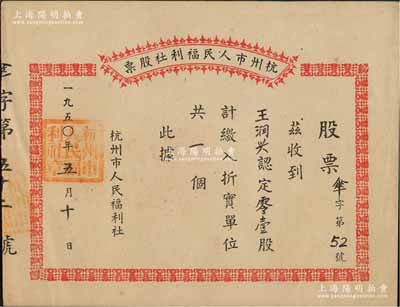 上海陽明拍賣
www.yangmingauction.com
杭州市人民福利社股票
股票
字第52號
茲收到
王潤 認定零壹股
計繳入折實單位
共 個
此據
杭州市人民福利社
一九五〇年五月十日
字第五十二號
上海陽明拍賣